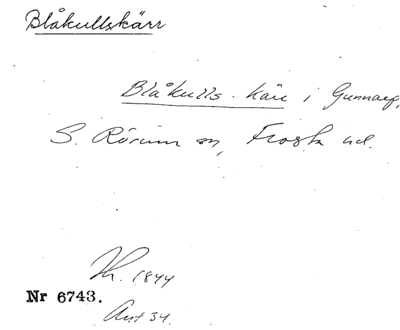 Blåkullskärr
Blåkulls-kärr i Gunnarp,
S. Rörum sn, Frosta hd.
1844
Nr 6743.
Ant 34.